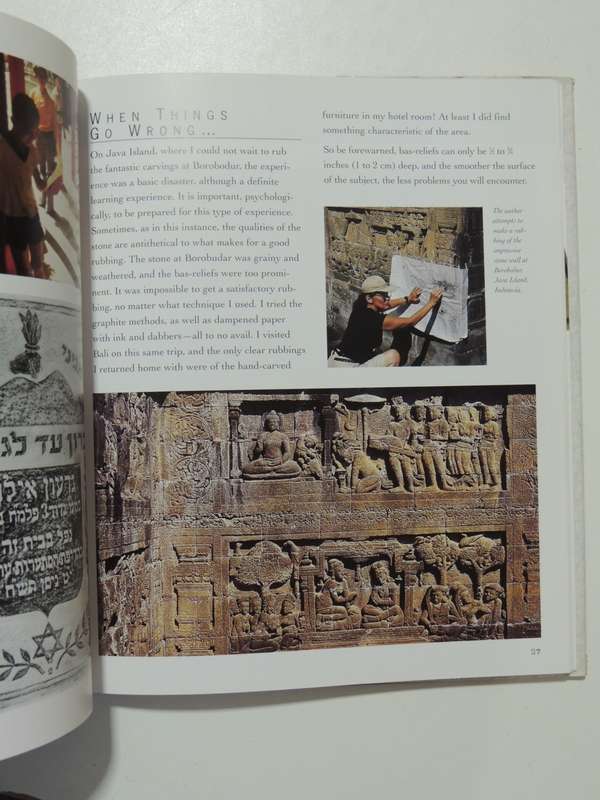 WHEN THINGS
GO WRONG...
On Java Island, where I could not wait to rub
the fantastic carvings at Borobodur, the experi-
ence was a basic disaster, although a definite
learning experience. It is important, psychologi-
cally, to be prepared for this type of experience.
Sometimes, as in this instance, the qualities of the
stone are antithetical to what makes for a good
rubbing. The stone at Borobudar was grainy and
weathered, and the bas-reliefs were too promi-
nent. It was impossible to get a satisfactory rub-
bing, no matter what technique I used. I tried the
graphite methods, as well as dampened paper
with ink and dabbers—all to no avail. I visited
Bali on this same trip, and the only clear rubbings
I returned home with were of the hand-carved
furniture in my hotel room! At least I did find
something characteristic of the area.
So be forewarned, bas-reliefs can only be to
inches (1 to 2 cm) deep, and the smoother the surface
of the subject, the less problems you will encounter.
The author
attempts to
make a rub-
bing of the
impressive
stone wall at
Borobodur,
Java Island,
Indonesia.
27